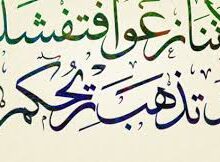 تنازعوا فتفشلوا
وتذهب ريحكم